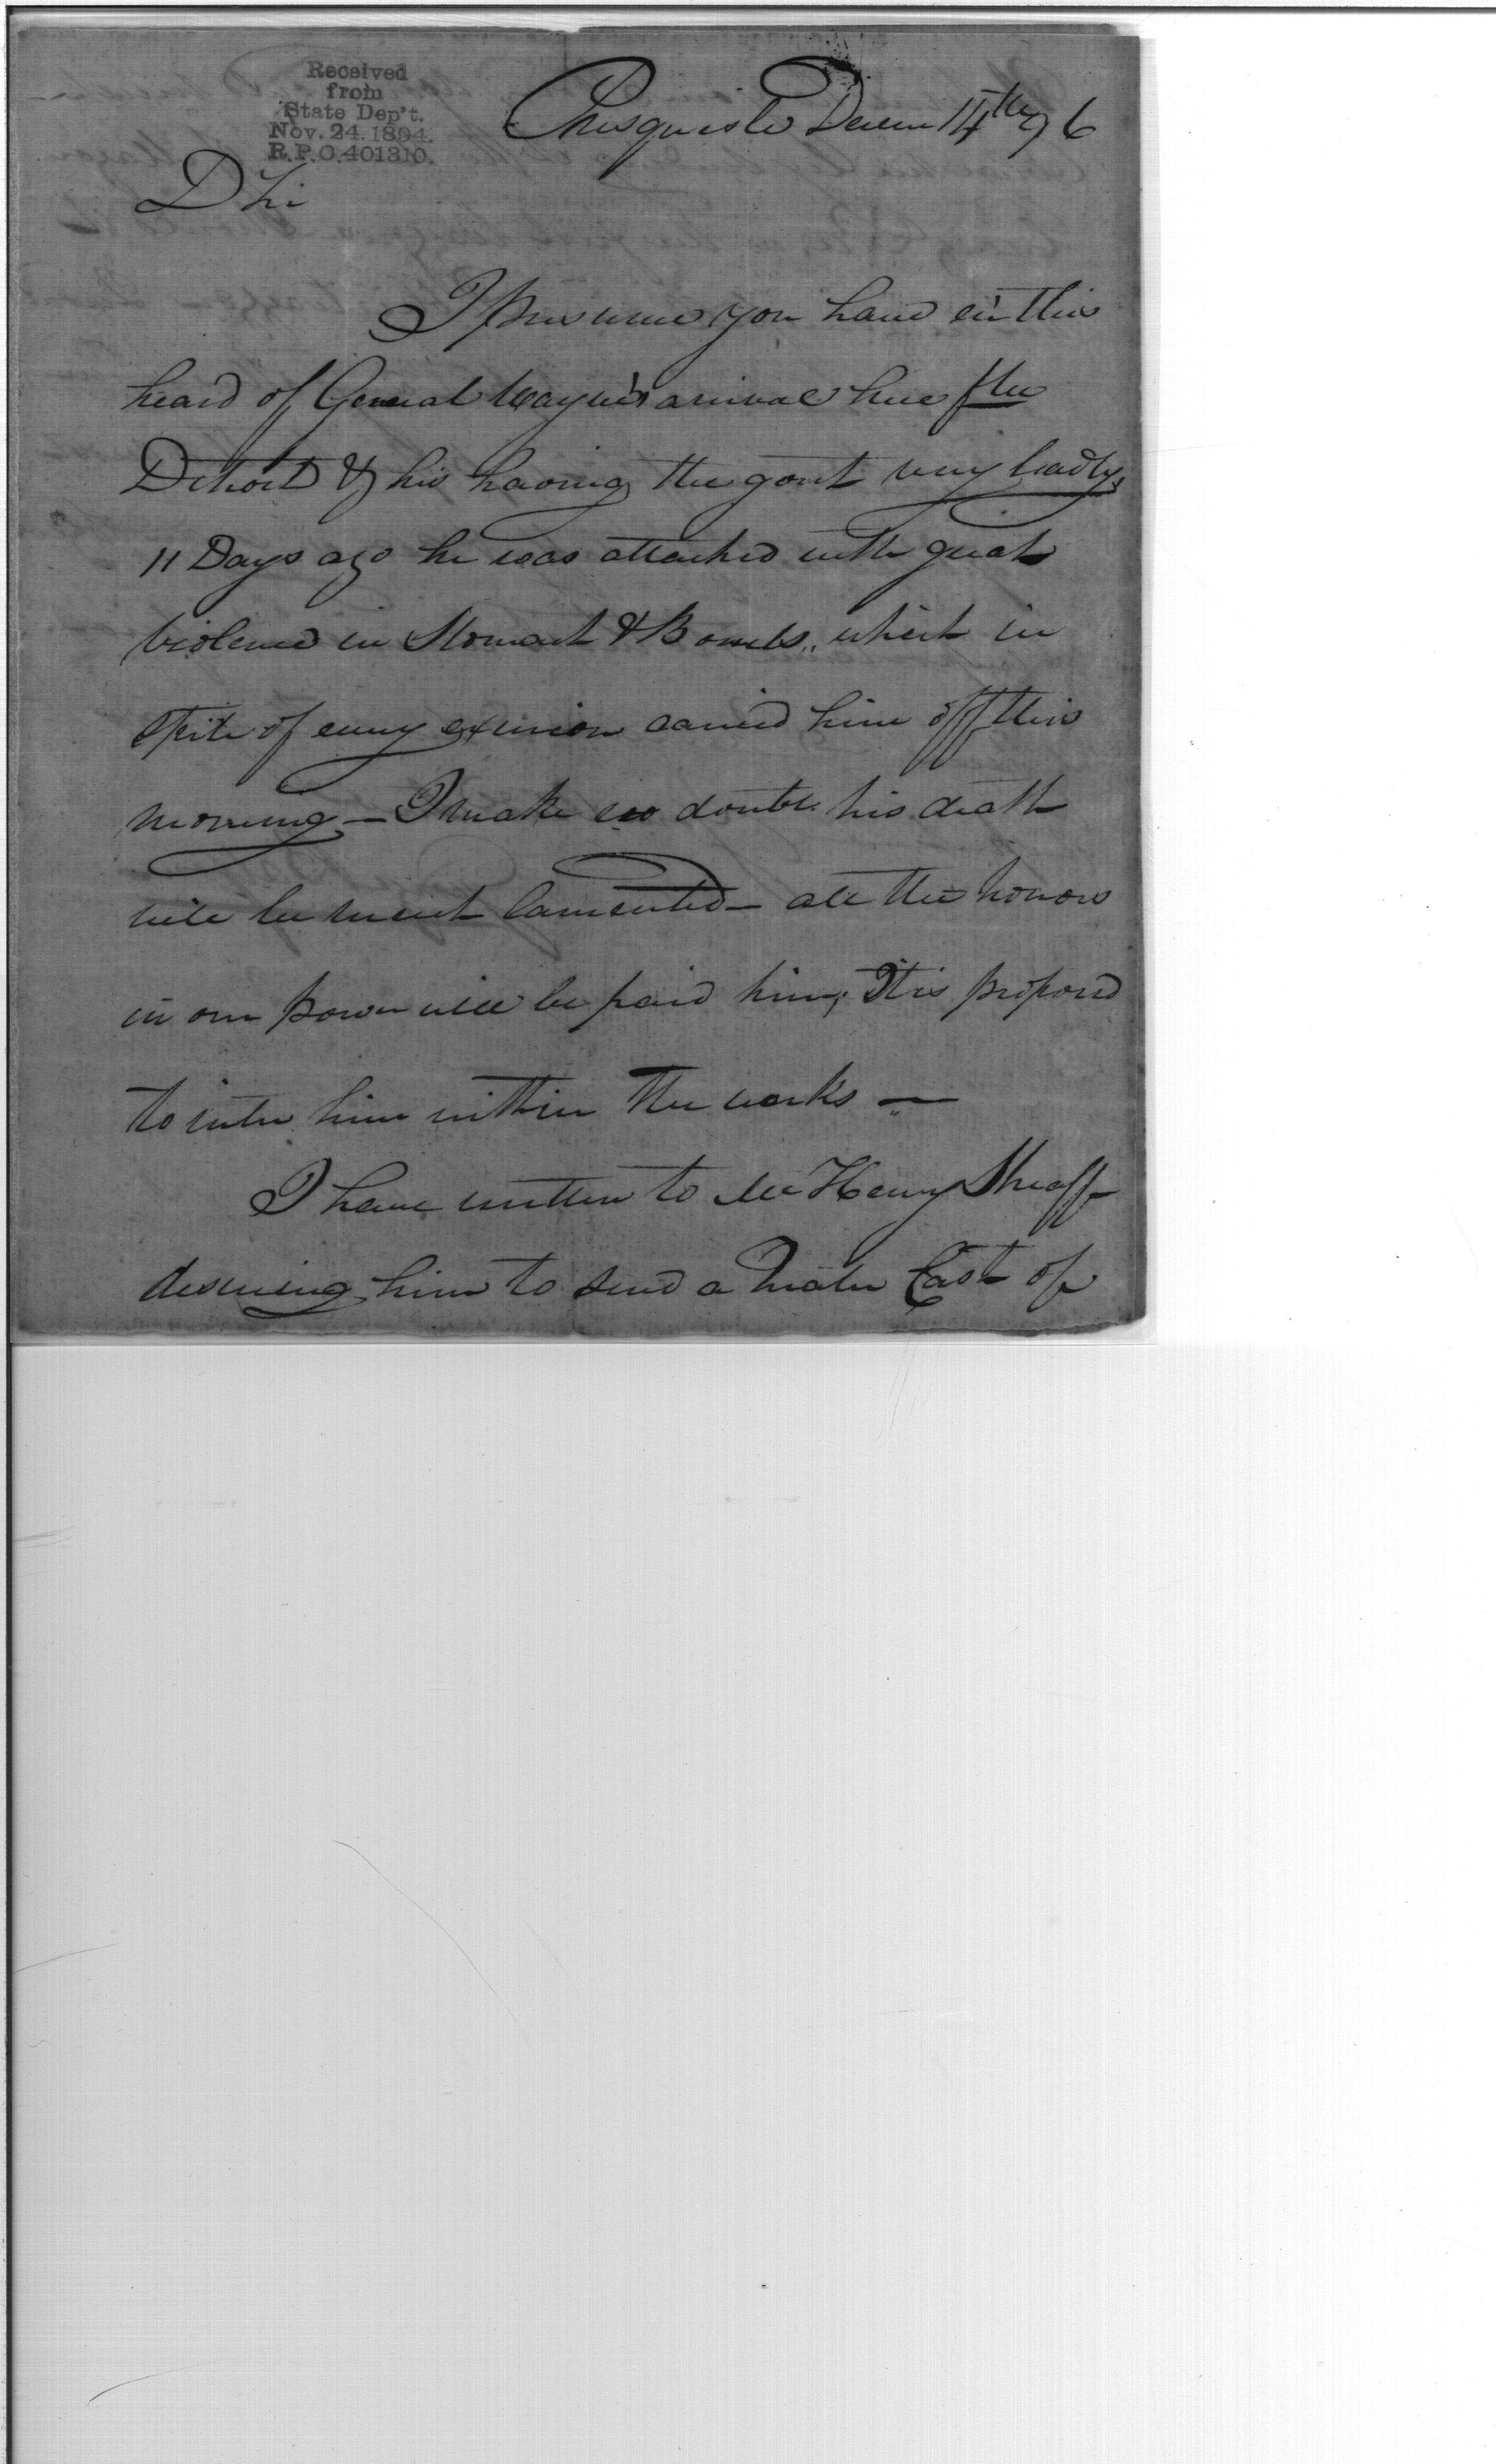 Received
from
State Dep't.
Nov. 24. 1894.
R.P.O. 401310.
Presquisle Decem 14th 96
D Sir
I presume you have e'er this
heard of General Wayne's arrival here fm
Detroit & his having the gout very badly,
11 Days ago he was attacked with great
violence in Stomach & Bowels, which in
spite of every exersion carried him off this
morning — I make no doubt his death
will be much lamented — all the honors
in our power will be paid him; It is proposed
to inter him within the works —
I have written to Mr Henry Sheaff
desireing him to send a Qater Cast of